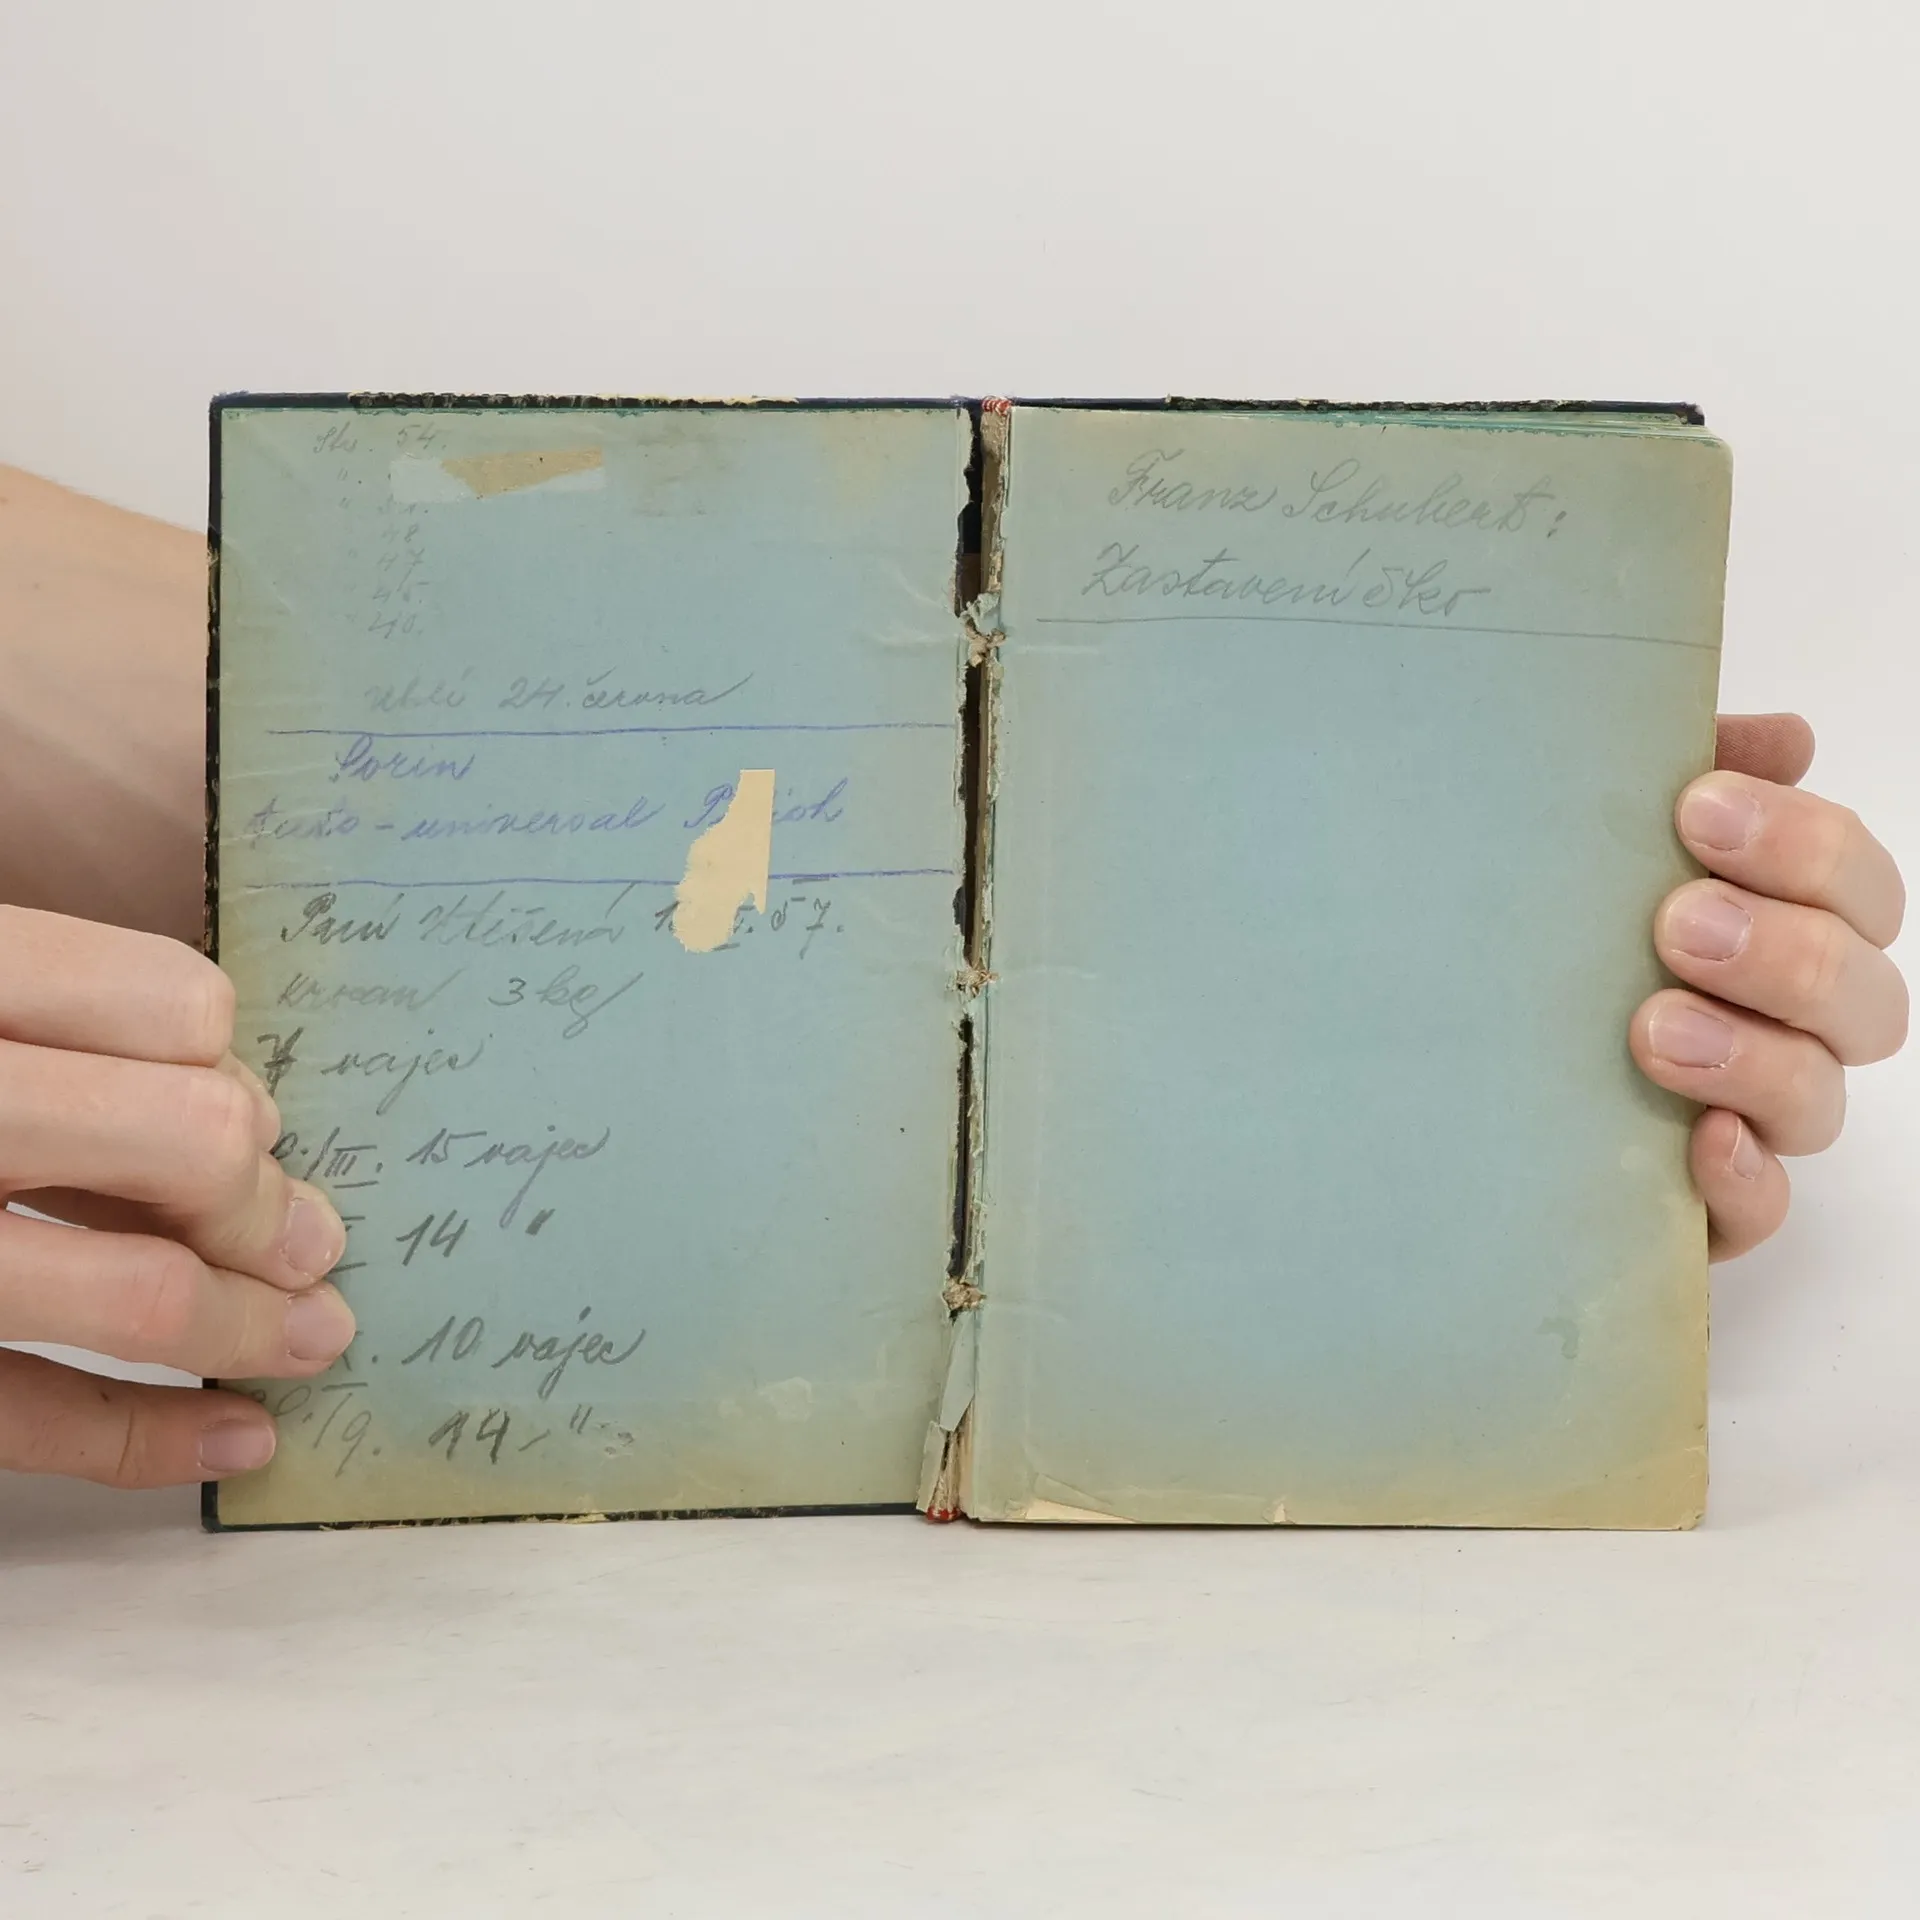 Str. 54.
"
"
48
" 47
" 45.
" 40.
uhlí 24. června
Sorin
auto-universal
Paní 57.
krocan 3 kg
7 vajec
/III. 15 vajec
14 "
X. 10 vajec
/9. 14 "
Franz Schubert:
Zastaveníčko